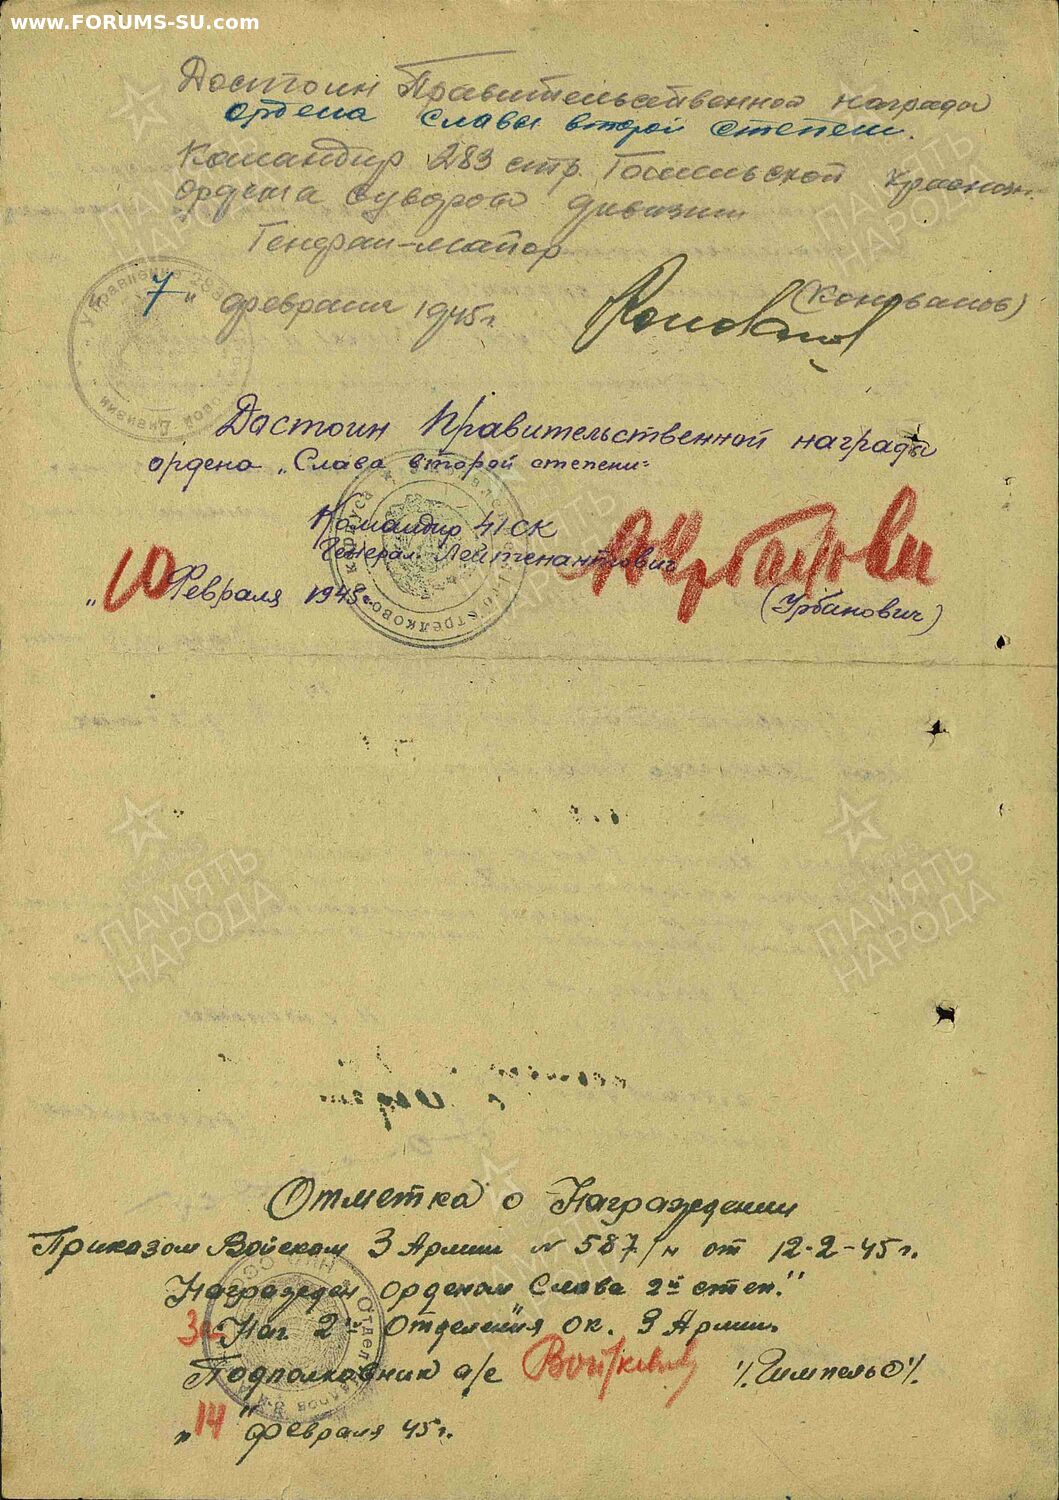 www.FORUMS-SU.com
Достоин Правительственной награды
ордена Славы второй степени.
Командир 283 стр. Гомельской Краснозн.
ордена Суворова дивизии
Генерал-майор
7" февраля 1945г.
(Коновалов)
Достоин Правительственной награды
ордена „Слава второй степени"
Командир 41 СК
Генерал-Лейтенант
(Урбанович)
„10 Февраля 1945г.
ПАМЯТЬ
НАРОДА
ПАМЯТЬ
НАРОДА
Отметка о Награждении
Приказом Войскам 3 Армии № 587/н от 12-2-45г.
Награжден орденом Слава 2й степ."
За Нач 2го Отделения ок. 3 Армии
Подполковник а/с
„14" февраля 45г.